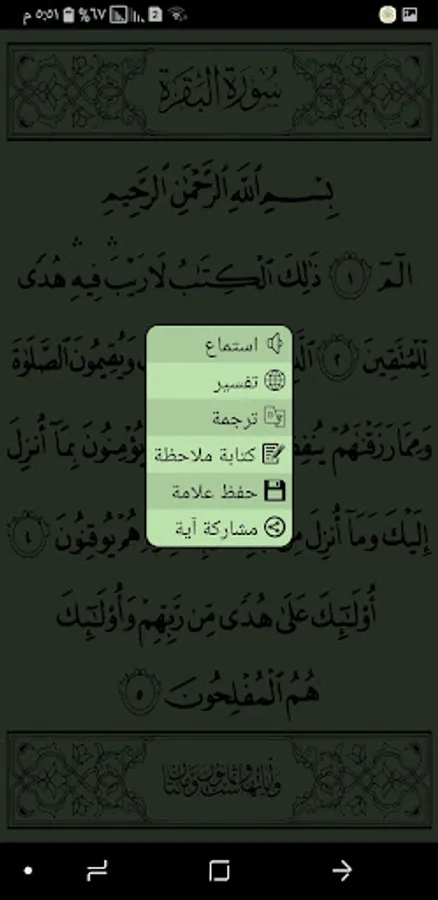 ٥:٥١ م ٪٦٧ 2
سُورَةُ البَقَرَةِ
بِسْمِ ٱللَّهِ ٱلرَّحْمَٰنِ ٱلرَّحِيمِ
الٓمٓ ١ ذَٰلِكَ ٱلْكِتَٰبُ لَا رَيْبَ ۛ فِيهِ ۛ هُدًى
لِّلْمُتَّقِينَ ٢ وَيُقِيمُونَ ٱلصَّلَوٰةَ
وَمِمَّا رَزَقْنَٰهُمْ يُؤْمِنُونَ بِمَآ أُنزِلَ
إِلَيْكَ وَمَآ أُنزِلَ هُمْ يُوقِنُونَ ٤
أُو۟لَٰٓئِكَ عَلَىٰ هُدًى مِّن رَّبِّهِمْ وَأُو۟لَٰٓئِكَ
هُمُ ٱلْمُفْلِحُونَ ٥
استماع
تفسير
ترجمة
كتابة ملاحظة
حفظ علامة
مشاركة آية